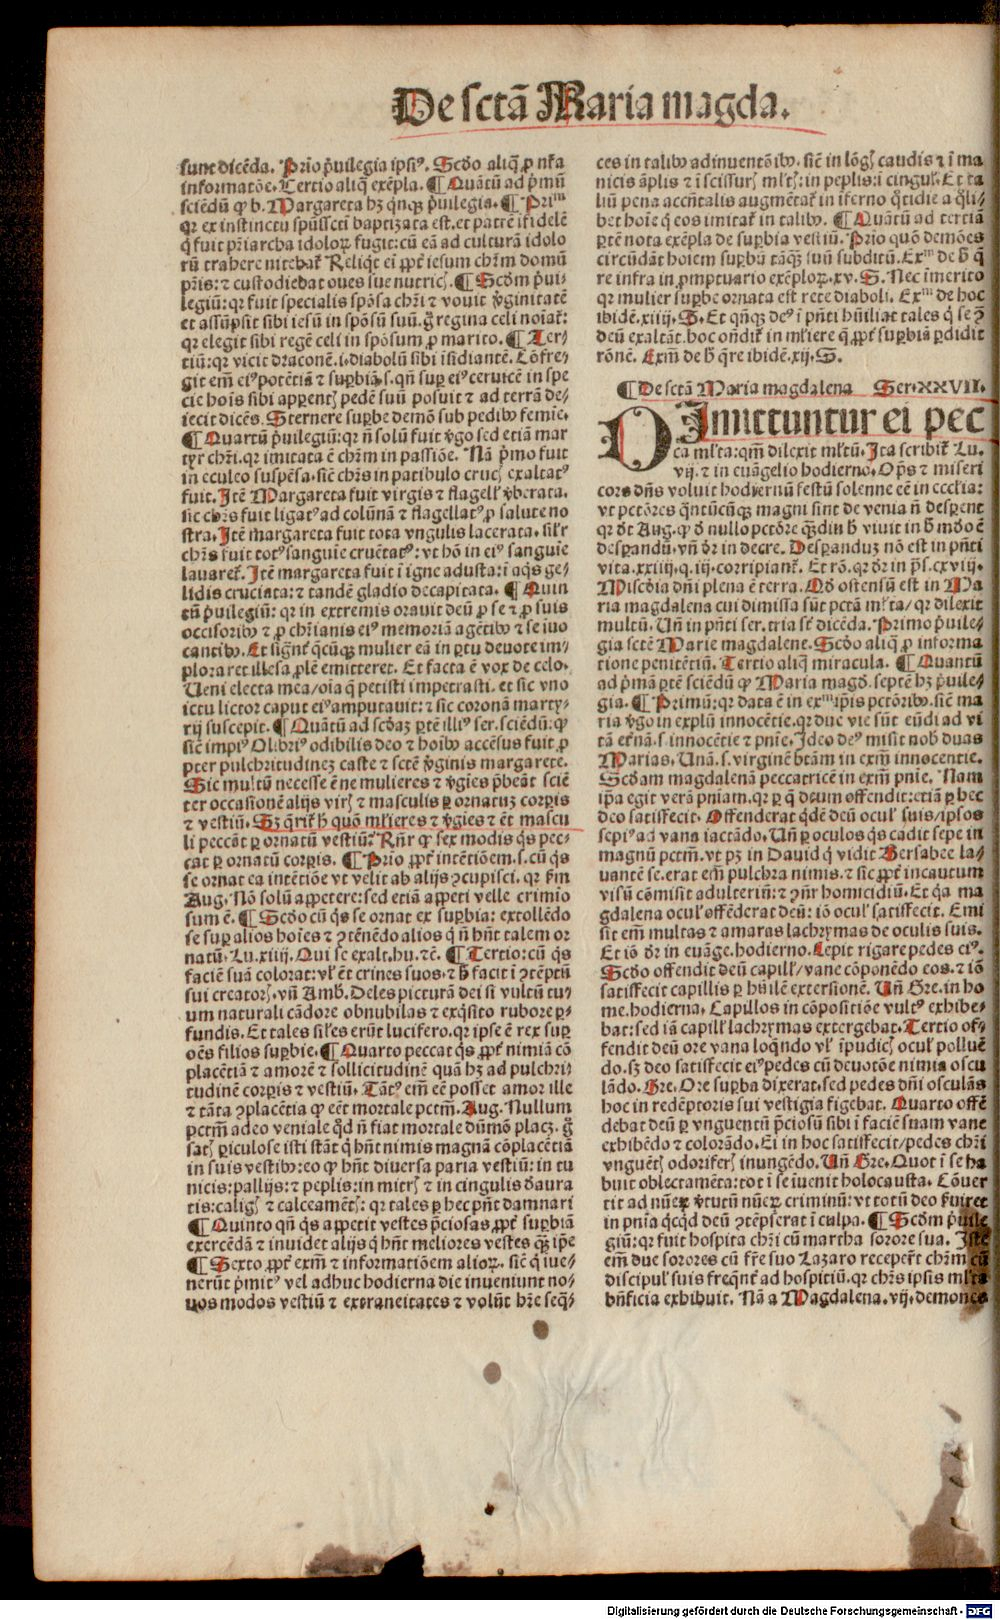 De sctā Maria magda.
sunt dicēda. Prīo p̄uilegia ipsiꝰ. Scd̄o aliq̄ ꝓ nr̄a
informatōe. Tertio aliq̄ exēpla. ¶ Quātū ad p̄mū
sciēdū ꝙ b. Margareta hꝫ q̄nqꝫ p̄uilegia. ¶ Primᵐ
qꝛ ex instinctu spūssctī baptizata est. et patrē ifidelē
q̄ fuit p̄riarcha idoloꝝ fugit: cū eā ad culturā idolo
rū trahere nitebat᷑ Reliqt̄ ei ꝓpt̄ iesum chr̄m domū
pr̄is: ⁊ custodiebat oues sue nutric̄. ¶ Scd̄m p̄ui-
legiū: qꝛ fuit specialis spōsa chr̄i ⁊ vouit v̄ginitatē
et assūpsit sibi iesū in spōsū suū. ḡ regina celi noīat᷑:
qꝛ elegit sibi regē celi in spōsum ꝓ marito. ¶ Ter-
tiū: qꝛ vicit draconē. i. diabolū sibi īsidiantē. Cōfre-
git em̄ eiꝰ potētiā ⁊ suꝑbiā. s. qn̄ suꝑ eiꝰ ceruicē in spe
cie hoīs sibi apparent̄ pedē suū posuit ⁊ ad terrā de-
iecit dicēs. Sternere suꝑbe demō sub pedibꝰ femīe.
¶ Quartū p̄uilegiū: qꝛ n̄ solū fuit v̄go sed etiā mar
tyr chr̄i. qꝛ imitata ē chr̄m in passiōe. Nā p̄mo fuit
in eculeo suspēsa. sic̄ chr̄s in patibulo cruc̄ exaltatꝰ
fuit. Itē Margareta fuit virgis ⁊ flagell̄ v̄berata.
sic chr̄s fuit ligatꝰ ad colūnā ⁊ flagellatꝰ ꝓ salute no
stra. Itē margareta fuit tota vngulis lacerata. sil̄r
chr̄s fuit totꝰ sanguīe cruētatꝰ: vt hō in eiꝰ sanguīe
lauaret᷑. Itē margareta fuit ī igne adusta: ī aq̄s ge-
lidis cruciata: ⁊ tandē gladio decapitata. ¶ Quin
tū p̄uilegiū: qꝛ in extremis orauit deū ꝓ se ⁊ ꝓ suis
occisoribꝰ ⁊ ꝓ chr̄ianis eiꝰ memoriā agētibꝰ ⁊ se īuo
cantibꝰ. Et signt̄ q̄cūqꝫ mulier eā in ꝑtu deuote im-
ploraret illesa ꝓlē emitteret. Et facta ē vox de celo.
Ueni electa mea/oīa q̄ petisti impetrasti. et sic vno
ictu lictor caput eiꝰ amputauit: ⁊ sic coronā marty-
rij suscepit. ¶ Quātū ad scd̄aꝫ ꝑtē illiꝰ ser. sciēdū: ꝙ
sic̄ impiꝰ Olibriꝰ odibilis deo ⁊ hoībꝰ accēsus fuit ꝓ
pter pulchritudineꝫ caste ⁊ sctē v̄ginis margarete.
Sic multū necesse ē ne mulieres ⁊ v̄gīes p̄beāt sciē
ter occasionē alijs vir̄ ⁊ masculis ꝑ ornatuꝫ corꝑis
⁊ vestiū. Sꝫ q̄rit᷑ h̄ quō ml̄ieres ⁊ v̄gīes ⁊ ēt mascu
li peccāt ꝑ ornatū vestiū? Rn̄r ꝙ sex modis q̄s pec-
cat ꝑ ornatū corꝑis. ¶ Prīo ꝓpt̄ intētiōem. s. cū q̄s
se ornat ea intētiōe vt velit ab alijs ꝯcupisci. qꝛ ẜm
Aug. Nō solū appetere: sed etiā appeti velle crimīo
sum ē. ¶ Scd̄o cū q̄s se ornat ex suꝑbia: extollēdo
se suꝑ alios hoīes ⁊ ꝯtēnēdo alios q̄ n̄ hn̄t talem or
natū. Lu. xiiij. Qui se exalt. hu. ⁊c̄. ¶ Tertio: cū q̄s
faciē suā colorat: vl̄ ēt crines suos. ⁊ h̄ facit ī ꝯtēptū
sui creator̄. vn̄ Amb. Deles picturā dei si vultū tu-
um naturali cādore obnubilas ⁊ exq̄sito rubore ꝑ-
fundis. Et tales sil̄es erūt lucifero. qꝛ ipse ē rex suꝑ
oēs filios suꝑbie. ¶ Quarto peccat q̄s ꝓpt̄ nimiā cō
placētiā ⁊ amorē ⁊ sollicitudinē quā hꝫ ad pulchri-
tudinē corꝑis ⁊ vestiū. Tātꝰ em̄ eē posset amor ille
⁊ tāta ꝯplacētia ꝙ eēt mortale pctm̄. Aug. Nullum
pctm̄ adeo veniale qd̄ n̄ fiat mortale dūmō placꝫ. ḡ
sat̄ ꝑiculose isti stāt q̄ hn̄t nimis magnā cōplacētiā
in suis vestibꝰ: eo ꝙ hn̄t diuersa paria vestiū: in tu
nicis: pallijs: ⁊ peplis: in mitr̄ ⁊ in cingulis d̄aura
tis: caliḡ ⁊ calceamēt̄: qꝛ tales ꝑ hec pn̄t damnari
¶ Quinto qn̄ q̄s appetit vestes p̄ciosas ꝓpt̄ suꝑbiā
exercēdā ⁊ inuidet alijs q̄ hn̄t meliores vestes qꝫ ip̄e
¶ Sexto ꝓpt̄ exm̄ ⁊ informatiōem alioꝝ. sic̄ q̄ īue-
nerūt p̄mitꝰ vel adhuc hodierna die inueniunt no-
uos modos vestiū ⁊ extraneitates ⁊ volūt hr̄e seq̄-
ces in talibꝰ adinuentōibꝰ. sic̄ in lōḡ caudis ⁊ ī ma
nicis āplis ⁊ ī scissur̄ ml̄t̄: in peplis: ī cingul̄. Et ta
liū pena accn̄talis augmētat᷑ in īferno q̄tidie a q̄li-
bet hoīe q̄ eos imitat᷑ in talibꝰ. ¶ Quātū ad tertiā
ꝑtē nota exēpla de suꝑbia vestiū. Prīo quō demōes
circūdāt hoīem suꝑbū tāqꝫ suū subditū. Exᵐ de h̄ q̄
re infra in ꝓmptuario exēploꝝ. xv. S. Nec īmerito
qꝛ mulier suꝑbe ornata est rete diaboli. Exᵐ de hoc
ibidē. xiiij. S. Et qn̄qꝫ deꝰ ī pn̄ti hūiliat tales q̄ se ꝯ̄
deū exaltāt. hoc on̄dit᷑ in ml̄iere q̄ ꝓpt̄ suꝑbiā ꝑdidit
rōnē. Exm̄ de h̄ q̄re ibidē. xij. S.
¶ De sctā Maria magdalena Ser. XXVII.
DImittuntur ei pec
ca ml̄ta: qm̄ dilexit ml̄tū. Ita scribit᷑ Lu.
vij. ⁊ in euāgelio hodierno. Op̄s ⁊ miseri
cors dn̄s voluit hodiernū festū solenne eē in eccl̄ia:
vt pctōres q̄ntūcūqꝫ magni sint de venia n̄ desperent
qꝛ dt̄ Aug. ꝙ d̄ nullo pctōre qꝫdiu h̄ viuit in h̄ mūdo ē
desꝑandū. vn̄ dr̄ in decre. Desꝑanduꝫ nō est in pn̄ti
vita. xxiij. q. iij. corripiant᷑. Et rō. qꝛ dr̄ in p̄s. cxviij.
Miscd̄ia dn̄i plena ē terra. Qd̄ ostensū est in Ma
ria magdalena cui dimissa sūt pctā ml̄ta/ qꝛ dilexit
multū. Un̄ in pn̄ti ser. tria st̄ dicēda. Primo p̄uile-
gia sctē Marie magdalene. Scd̄o aliq̄ ꝓ informa
tione penitētiū. Tertio aliq̄ miracula. ¶ Quantū
ad p̄mā ꝑtē sciēdū ꝙ Maria magd̄. septē hꝫ p̄uile-
gia. ¶ Primū: qꝛ data ē in exᵐ ip̄is pctōribꝰ. sic̄ ma
ria v̄go in explū innocētie. qꝛ due vie sūt eūdi ad vi
tā et̄nā. s. innocētie ⁊ pn̄ie. Ideo deꝰ misit nob̄ duas
Marias. Unā. s. virginē btām in exm̄ innocentie.
Scd̄am magdalenā peccatricē in exm̄ pn̄ie. Nam
ip̄a egit verā pn̄iam. qꝛ ꝑ q̄ deum offendit: etiā ꝑ hec
deo satisfecit. Offenderat qd̄ē deū ocul̄ suis/ipsos
sepiꝰ ad vana iactādo. Un̄ ꝑ oculos q̄s cadit sepe in
magnū pctm̄. vt pꝫ in Dauid q̄ vidit Bersabee la-
uantē se. erat em̄ pulchra nimis. ⁊ sic ꝓpt̄ incautum
visū cōmisit adulteriū: ⁊ ꝯn̄r homicidiū. Et qa ma
gdalena ocul̄ offēderat deū: iō ocul̄ satisfecit. Emi
sit em̄ multas ⁊ amaras lachrymas de oculis suis.
Et iō dr̄ in euāge. hodierno. Cepit rigare pedes eiꝰ.
Scd̄o offendit deū capill̄/vane cōponēdo eos. ⁊ iō
satisfecit capillis ꝑ hūilē extersionē. Un̄ Gre. in ho
me. hodierna. Capillos in cōpositiōe vultꝰ exhibe-
bat: sed iā capill̄ lachrymas extergebat. Tertio of-
fendit deū ore vana loq̄ndo vl̄ īpudic̄ ocul̄ polluē
do. sꝫ deo satisfecit eiꝰ pedes cū deuotōe nimia oscu
lādo. Gre. Ore suꝑba dixerat. sed pedes dn̄i osculās
hoc in redēptoris sui vestigia figebat. Quarto offē
debat deū ꝑ vnguentū p̄ciosū sibi ī faciē suam vane
exhibēdo ⁊ colorādo. Ei in hoc satisfecit/pedes chr̄i
vnguēt̄ odorifer̄ inungēdo. Un̄ Gre. Quot ī se ha
buit oblectamēta: tot ī se īuenit holocausta. Cōuer
tit ad nūeꝝ v̄tutū nūeꝝ criminū: vt totū deo ẜuiret
in pn̄ia qcqd̄ deū ꝯtēpserat ī culpa. ¶ Scd̄m p̄uile
giū: qꝛ fuit hospita chr̄i cū martha sorore sua. Iste
em̄ due sorores cū fr̄e suo Lazaro receper̄t chr̄m cū
discipul̄ suis freqn̄t᷑ ad hospitiū. qꝛ chr̄s ipsis ml̄ta
bn̄ficia exhibuit. Nā a Magdalena. vij. demones
Digitalisierung gefördert durch die Deutsche Forschungsgemeinschaft - DFG